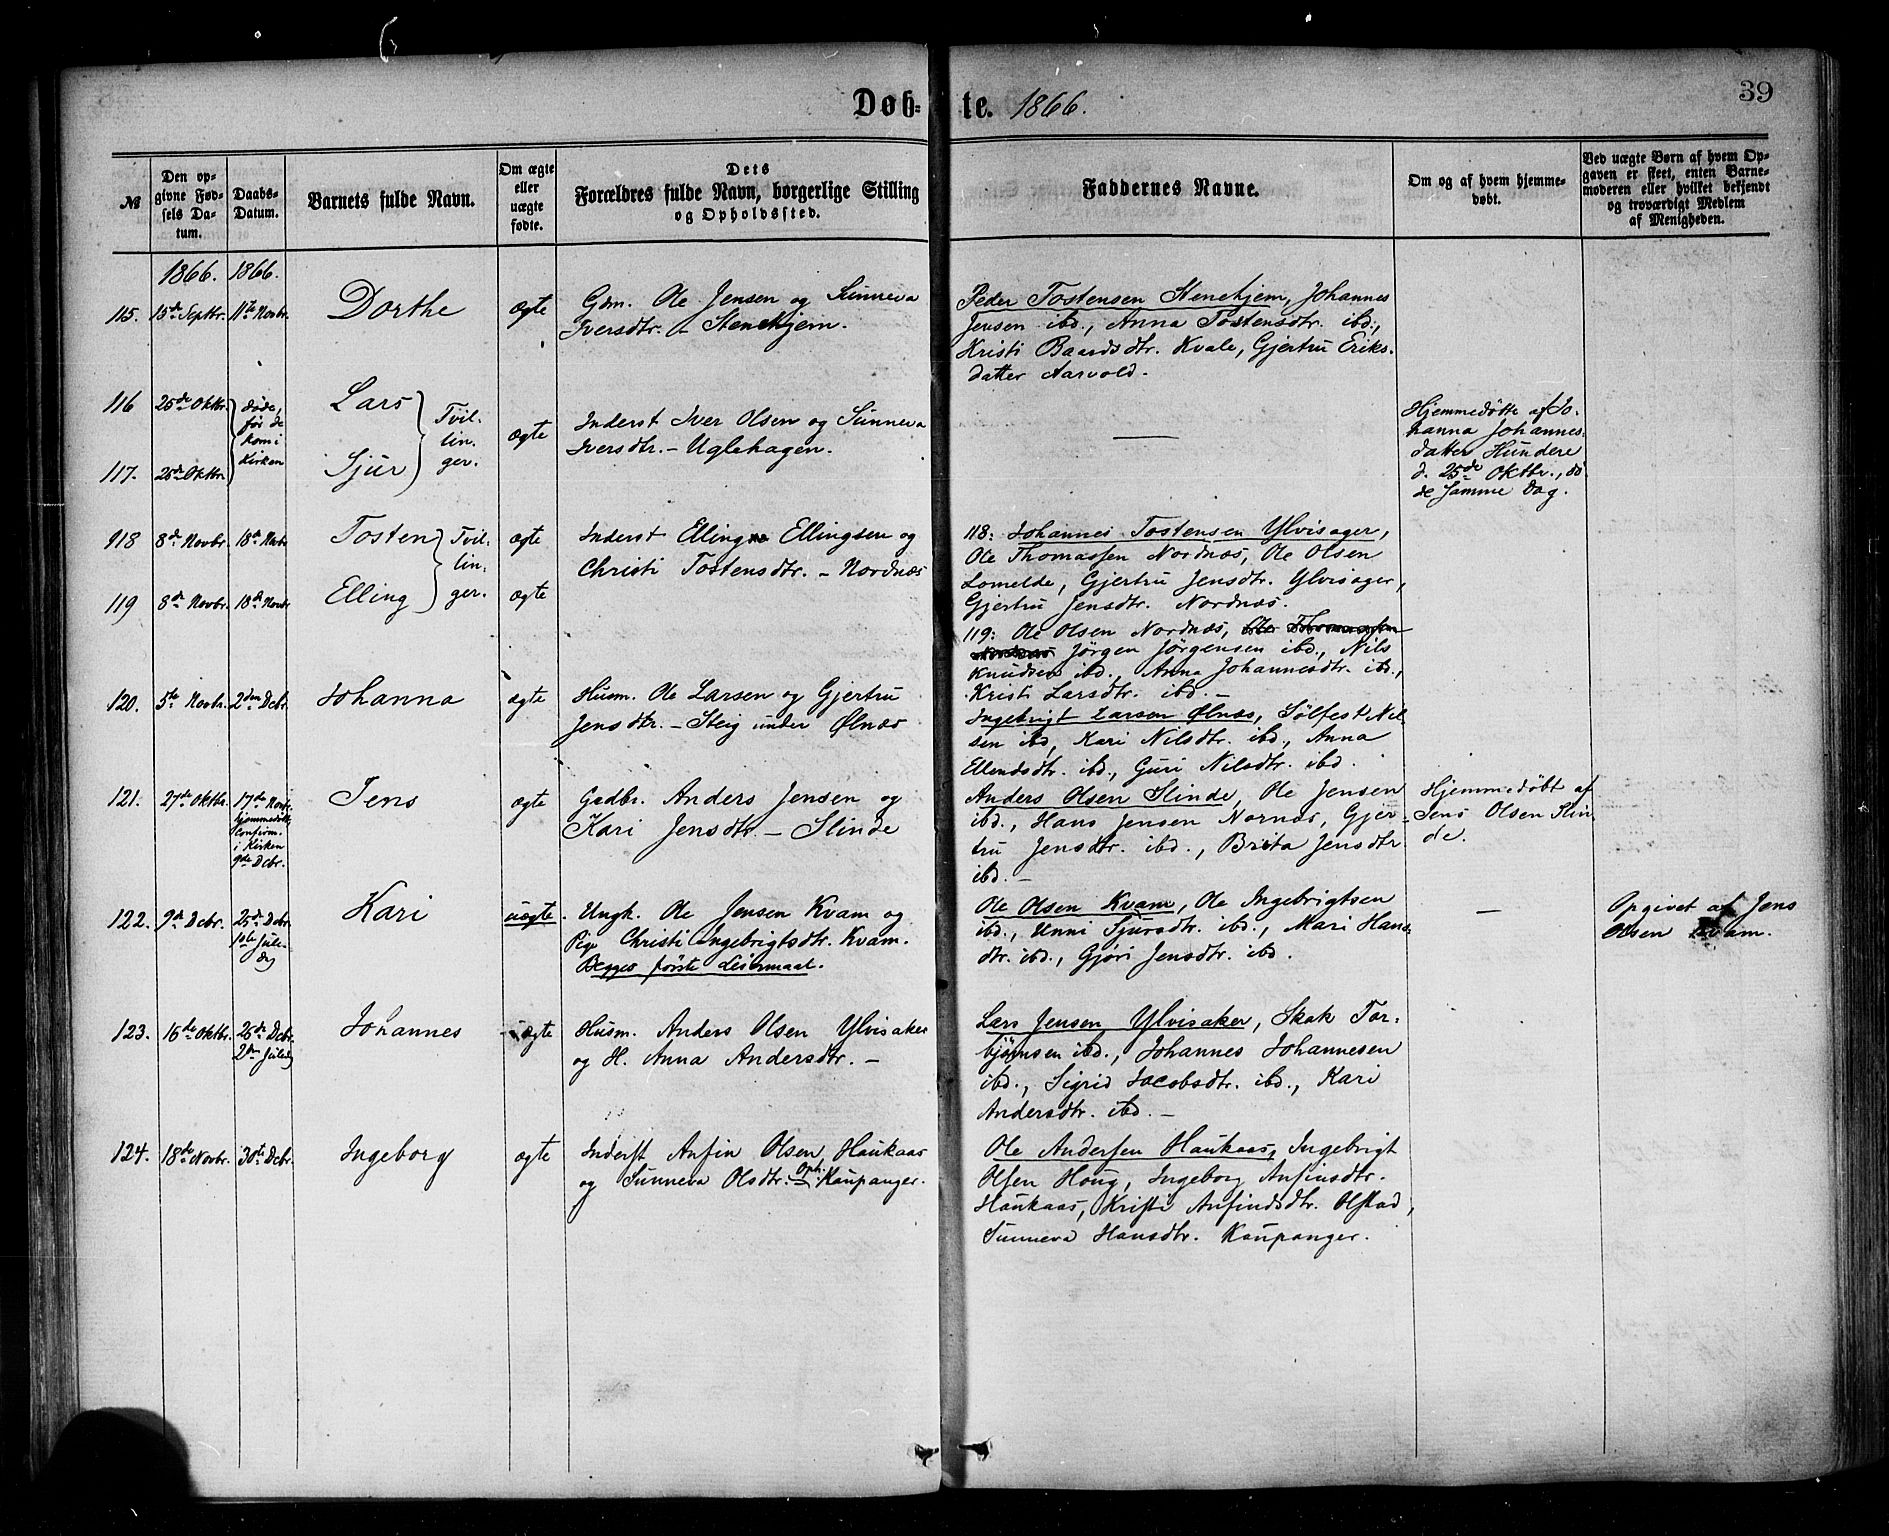 Døb=te. 1866.
39
№
Den op=
givne Fød=
sels Da=
tum.
Daabs=
Datum.
Barnets fulde Navn.
Om ægte
eller
uægte
fødte.
Dets
Forældres fulde Navn, borgerlige Stilling
og Opholdssted.
Faddernes Navne.
Om og af hvem hjemme=
døbt.
Ved uægte Børn af hvem Op=
gaven er skeet, enten Barne=
moderen eller hvilket bekjendt
og troværdigt Medlem
af Menigheden.
1866. 1866.
115. 15de Septbr. 11te Novbr. Dorthe ægte
Gdm. Ole Jensen og Sunneva
Iversdtr. - Stenehjem.
Peder Tostensen Stenehjem, Johannes
Jensen ibd., Anna Tostensdtr. ibd.,
Kristi Baardsdtr. Kvale, Gjertru Eriks-
datter Aarvold.
116 25de Oktbr. Lars
117. 25de Oktbr. Sjur
døde,
før de
kom i
Kirken
Tvil-
lin-
ger.
ægte
Inderst Iver Olsen og Sunneva
Iversdtr. - Uglehagen.
Hjemmedøbte af Jo-
hanna Johannes-
datter Hundere
d. 25de Oktbr., dø-
de samme Dag.
118 8de Novbr. 18de Novbr Tosten ægte
119 8de Novbr. 18de Novbr Elling ægte
Tvil-
lin-
ger.
Inderst Elling Ellingsen og
Christi Tostensdtr. - Nordnæs
118: Johannes Tostensen Ylvisager,
Ole Thomassen Nordnæs, Ole Olsen
Lomelde, Gjertru Jensdtr. Ylvisager,
Gjertru Jensdtr. Nordnæs.
119: Ole Olsen Nordnæs, Ole Thomassen
Nordnæs Jørgen Jørgensen ibd., Nils
Knudsen ibd., Anna Johannesdtr. ibd.,
Kristi Larsdtr. ibd. -
120. 5te Novbr. 2den Dcbr. Johanna ægte
Husm. Ole Larsen og Gjertru
Jensdtr. - Steig under Ølnæs
Ingebrigt Larsen Ølnæs, Sølfest Nil-
sen ibd, Kari Nilsdtr. ibd., Anna
Ellendsdtr. ibd., Guri Nilsdtr. ibd.
121. 27de Oktbr. Jens ægte
17de Novbr
hjemmedøbt,
Confirm.
i Kirken
9de Dcbr.
Gadbr. Anders Jensen og
Kari Jensdtr. - Slinde
Anders Olsen Slinde, Ole Jensen
ibd., Hans Jensen Nornæs, Gjer-
tru Jensdtr. ibd., Brita Jensdtr
ibd. -
Hjemmedøbt af
Jens Olsen Slin-
de.
122. 9de Dcbr. Kari uægte.
25de Dcbr.
1ste Jule-
dag
Ungk. Ole Jensen Kvam og
Pige Christi Ingebrigtsdtr. Kvam.
Begges første Leiermaal.
Ole Olsen Kvam, Ole Ingebrigtsen
ibd., Unni Sjursdtr. ibd., Mari Hans-
dtr. ibd., Gjøri Jensdtr. ibd.
—
Opgivet af Jens
Olsen Kvam.
123. 16de Oktbr. Johannes ægte
26de Dcbr.
2den Juledag
Husm. Anders Olsen Ylvisaker
og H. Anna Andersdtr. -
Lars Jensen Ylvisaker, Skak Tor-
bjørnsen ibd., Johannes Johannesen
ibd., Sigrid Jacobsdtr. ibd., Kari
Andersdtr. ibd. -
124. 18de Novbr. 30te Dcbr. Ingeborg ægte
Inderst Anfin Olsen Haukaas
og Sunneva Olsdtr. Oph. Kaupanger.
Ole Andersen Haukaas, Ingebrigt
Olsen Houg, Ingeborg Anfinsdtr.
Haukaas, Kristi Anfindsdtr. Olstad,
Sunneva Hansdtr. Kaupanger.